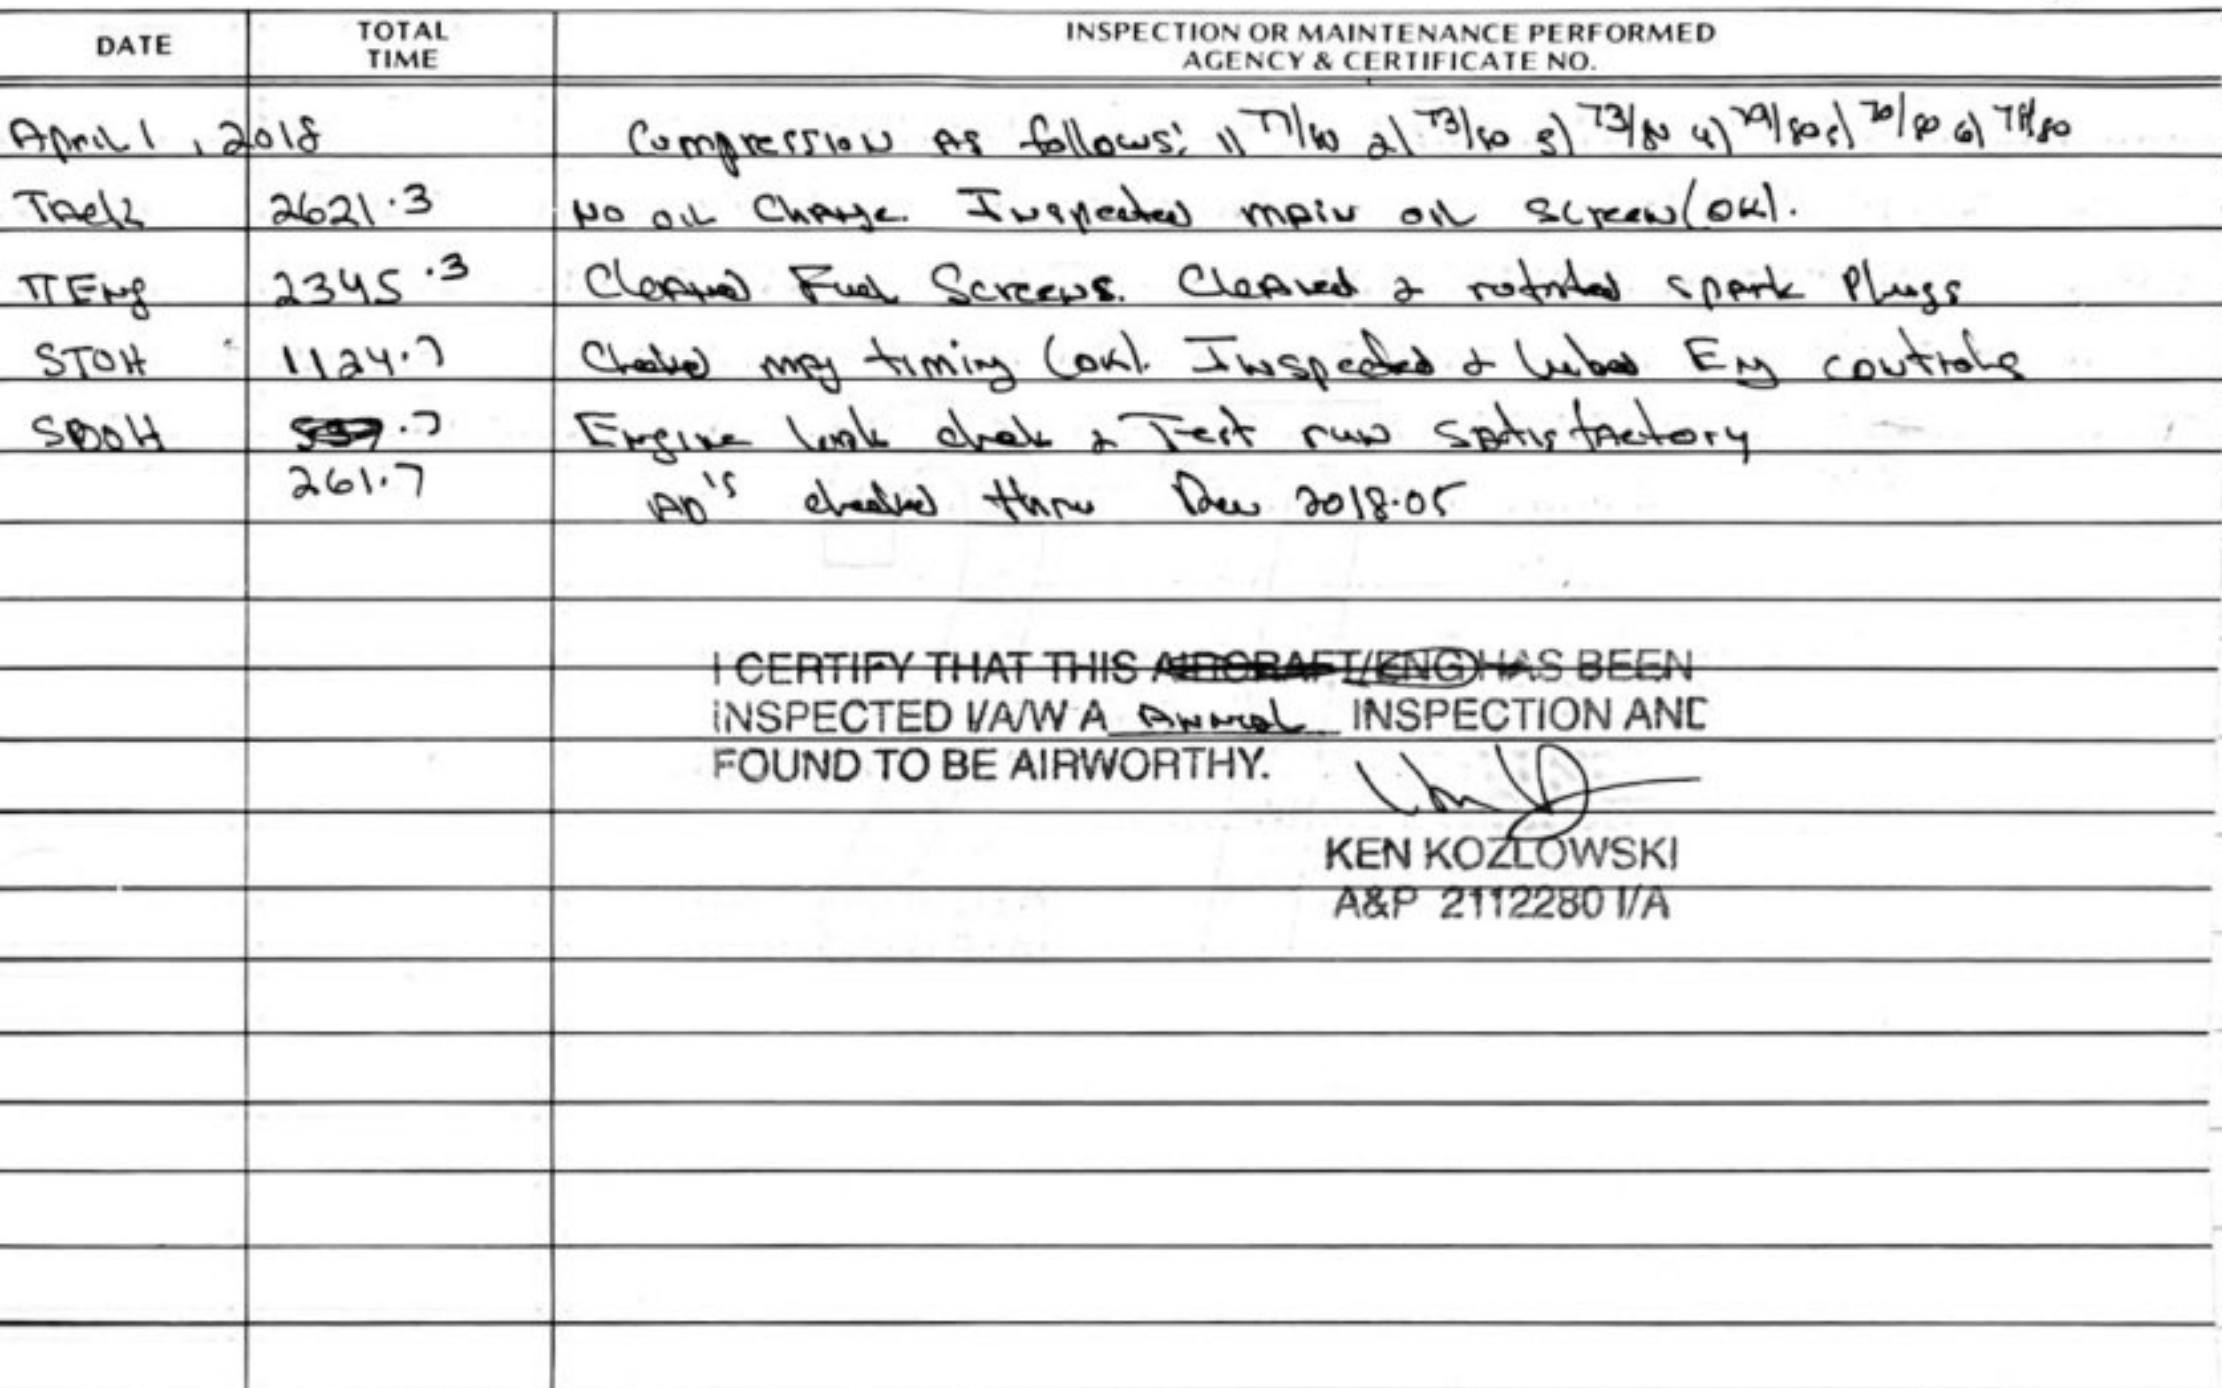 DATE TOTAL TIME INSPECTION OR MAINTENANCE PERFORMED AGENCY & CERTIFICATE NO.
April 1, 2018 Compression As follows: 1) 77/80 2) 73/80 3) 73/80 4) 79/80 5) 70/80 6) 78/80
Tach 2621.3 No oil Change. Inspected main oil screen (OK).
TTEng 2345.3 Cleaned Fuel Screens. Cleaned & rotated spark Plugs
STOH 1124.7 Checked mag timing (OK). Inspected & lubed Eng controls
SBOH .7 Engine leak check & Test run satisfactory
261.7 AD's checked thru 2018-05
I CERTIFY THAT THIS AIRCRAFT/ENG HAS BEEN
INSPECTED I/A/W A Annual INSPECTION AND
FOUND TO BE AIRWORTHY.
KEN KOZLOWSKI
A&P 2112280 I/A